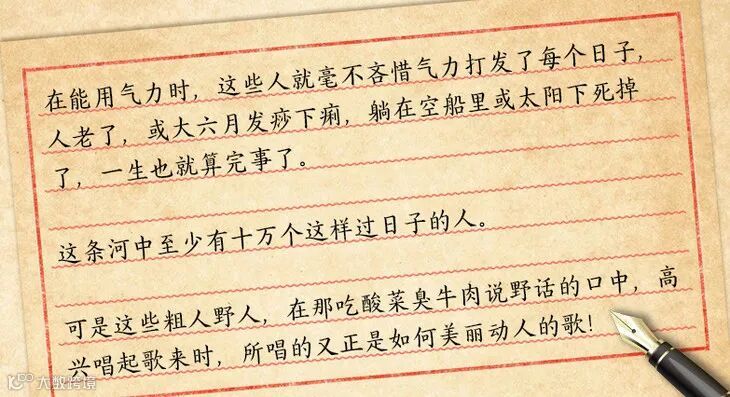 在能用气力时，这些人就毫不吝惜气力打发了每个日子，
人老了，或大六月发痧下痢，躺在空船里或太阳下死掉
了，一生也就算完事了。
这条河中至少有十万个这样过日子的人。
可是这些粗人野人，在那吃酸菜臭牛肉说野话的口中，高
兴唱起歌来时，所唱的又正是如何美丽动人的歌！
大数跨境